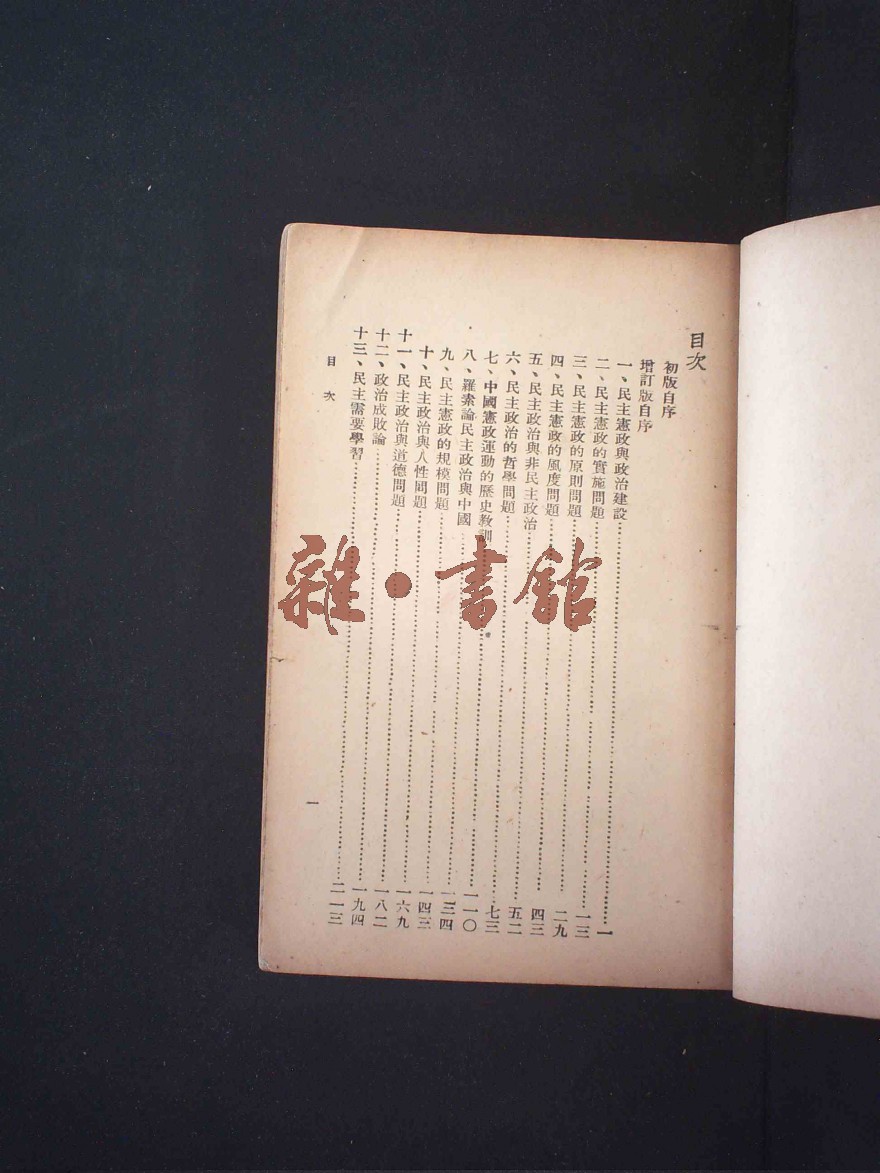 目次
初版自序
增訂版自序
一、民主憲政與政治建設……一
二、民主憲政的實施問題……一三
三、民主憲政的原則問題……二九
四、民主憲政的風度問題……四三
五、民主政治與非民主政治……五二
六、民主政治的哲學問題……七三
七、中國憲政運動的歷史教訓……一一〇
八、羅素論民主政治與中國……一三四
九、民主憲政的規模問題……一四三
十、民主政治與人性問題……一六九
十一、民主政治與道德問題……一八二
十二、政治成敗論……一九四
十三、民主需要學習……二一三
目次
一
雜·書館